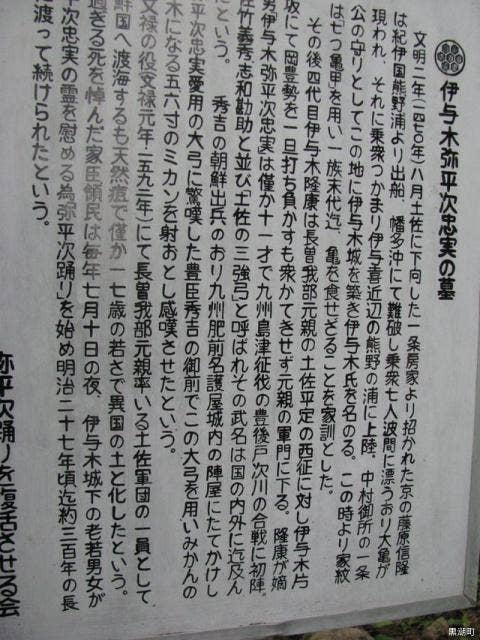 伊与木弥平次忠実の墓
文明二年(一四七〇年)八月土佐に下向した一条房家より招かれた京の藤原信隆
は紀伊国熊野浦より出船、幡多沖にて難破し乗衆七人波間に漂うおり大亀が
現われ、それに乗衆つかまり伊与喜近辺の熊野の浦に上陸、中村御所の一条
公の守りとしてこの地に伊与木城を築き伊与木氏を名のる。この時より家紋
は七つ亀甲を用い一族末代迄、亀を食せざることを家訓とした。
その後四代目伊与木隆康は長曽我部元親の土佐平定の西征に対し伊与木片
坂にて岡豊勢を一旦打ち負かすも衆かてきせず元親の軍門に下る。隆康が嫡
男伊与木弥平次忠実は僅か十一才で九州島津征伐の豊後戸次川の合戦に初陣、
佐竹義秀志和勘助と並び土佐の三強弓と呼ばれその武名は国の内外に迄及ん
だという。 秀吉の朝鮮出兵のおり九州肥前名護屋城内の陣屋にたてかけし
弥平次忠実愛用の大弓に驚嘆した豊臣秀吉の御前でこの大弓を用いみかんの
木になる五六寸のミカンを射おとし感嘆させたという。
文禄の役文禄元年(一五九二年)にて長曽我部元親率いる土佐軍団の一員として
鮮国へ渡海するも天然痘で僅か一七歳の若さで異国の土と化したという。
過ぎる死を悼んだ家臣領民は毎年七月十日の夜、伊与木城下の老若男女が
平次忠実の霊を慰める為弥平次踊りを始め明治二十七年頃迄約三百年の長
渡って続けられたという。
弥平次踊りを復活させる会
黒潮町